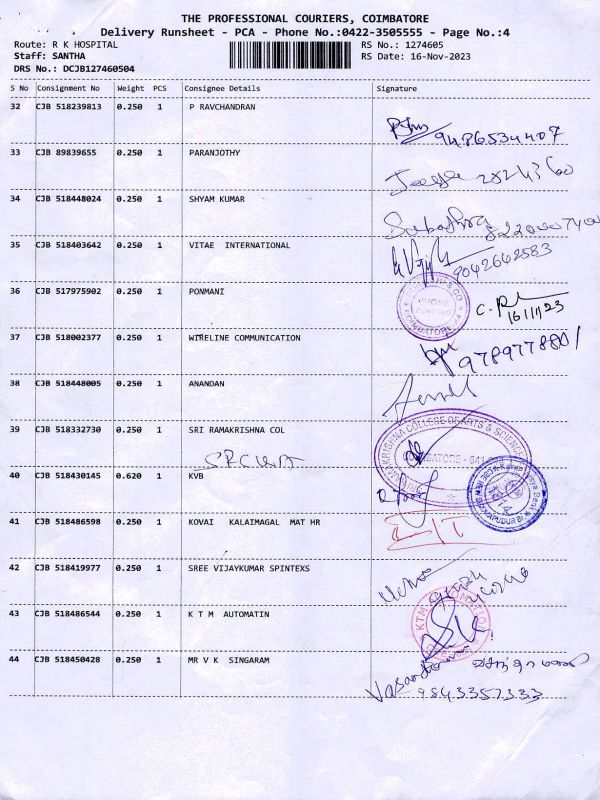 THE PROFESSIONAL COURIERS, COIMBATORE
Delivery Runsheet - PCA - Phone No.:0422-3505555 - Page No.:4
Route: R K HOSPITAL RS No.: 1274605
Staff: SANTHA RS Date: 16-Nov-2023
DRS No.: DCJB127460504
S No Consignment No Weight PCS Consignee Details Signature
32 CJB 518239813 0.250 1 P RAVCHANDRAN
9486534407
33 CJB 89839655 0.250 1 PARANJOTHY
34 CJB 518448024 0.250 1 SHYAM KUMAR
35 CJB 518403642 0.250 1 VITAE INTERNATIONAL
9042642583
36 CJB 517975902 0.250 1 PONMANI
PHONE
COIMBATORE
16/11/23
37 CJB 518002377 0.250 1 WIRELINE COMMUNICATION
9789778801
38 CJB 518448005 0.250 1 ANANDAN
39 CJB 518332730 0.250 1 SRI RAMAKRISHNA COL
SRI RAMAKRISHNA COLLEGE OF ARTS & SCIENCE
COIMBATORE - 641
40 CJB 518430145 0.620 1 KVB
41 CJB 518486598 0.250 1 KOVAI KALAIMAGAL MAT HR
42 CJB 518419977 0.250 1 SREE VIJAYKUMAR SPINTEXS
43 CJB 518486544 0.250 1 K T M AUTOMATIN
KTM AUTOMATION
44 CJB 518450428 0.250 1 MR V K SINGARAM
9843357333